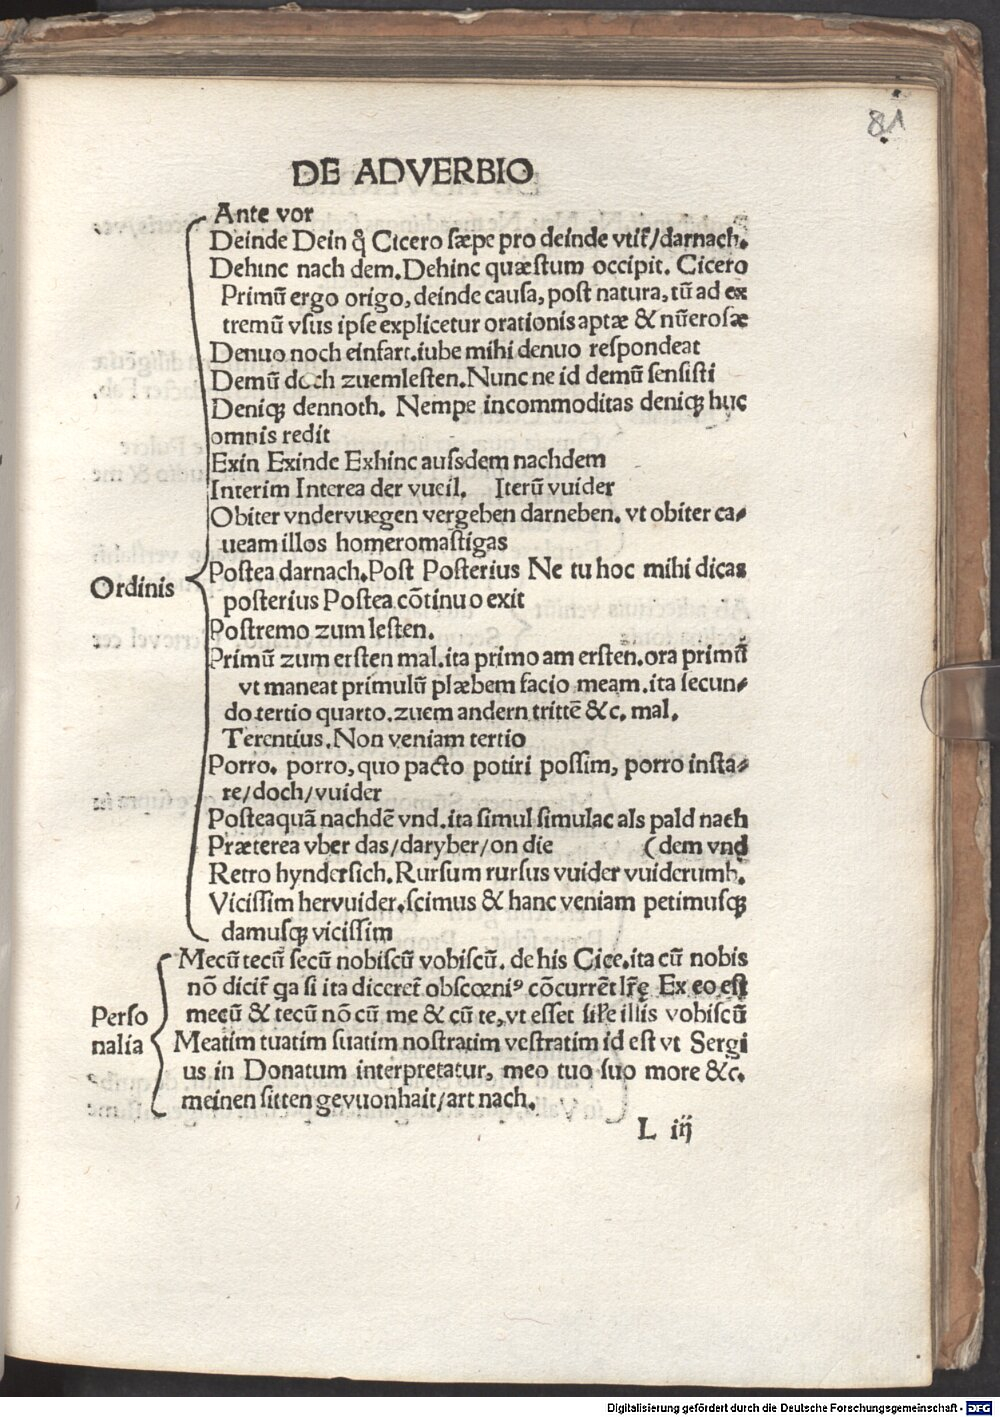 81
DE ADVERBIO
Ante vor
Deinde Dein q̊ Cicero sæpe pro deinde vtit᷑/darnach.
Dehinc nach dem. Dehinc quæstum occipit. Cicero
Primū ergo origo, deinde causa, post natura, tū ad ex
tremū vsus ipse explicetur orationis aptæ & nūerosæ
Denuo noch einfart. iube mihi denuo respondeat
Demū doch zuemlesten. Nunc ne id demū sensisti
Deniqꝫ dennoth. Nempe incommoditas deniqꝫ huc
omnis redit
Exin Exinde Exhinc aussdem nachdem
Interim Interea der vueil. Iterū vuider
Obiter vndervuegen vergeben darneben. vt obiter ca⸗
ueam illos homeromastigas
Ordinis
Postea darnach. Post Posterius Ne tu hoc mihi dicas
posterius Postea cōtinuo exit
Postremo zum lesten.
Primū zum ersten mal. ita primo am ersten. ora primū
vt maneat primulū plæbem facio meam. ita secun⸗
do tertio quarto. zuem andern trittē &c. mal.
Terentius. Non veniam tertio
Porro. porro, quo pacto potiri possim, porro insta⸗
re/doch/vuider
Posteaquā nachdē vnd. ita simul simulac als pald nach
Præterea vber das/daryber/on die (dem vnd
Retro hyndersich. Rursum rursus vuider vuiderumb.
Vicissim hervuider. scimus & hanc veniam petimusqꝫ
damusqꝫ vicissim
Mecū tecū secū nobiscū vobiscū. de his Cice. ita cū nobis
nō dicit᷑ qa si ita diceret᷑ obscœniꝰ cōcurrēt lr̄ę Ex eo est
Perso
nalia
mecū & tecū nō cū me & cū te, vt esset sil'e illis vobiscū
Meatim tuatim suatim nostratim vestratim id est vt Sergi
us in Donatum interpretatur, meo tuo suo more &c.
meinen sitten gevuonhait/art nach.
L iij
Digitalisierung gefördert durch die Deutsche Forschungsgemeinschaft - DFG